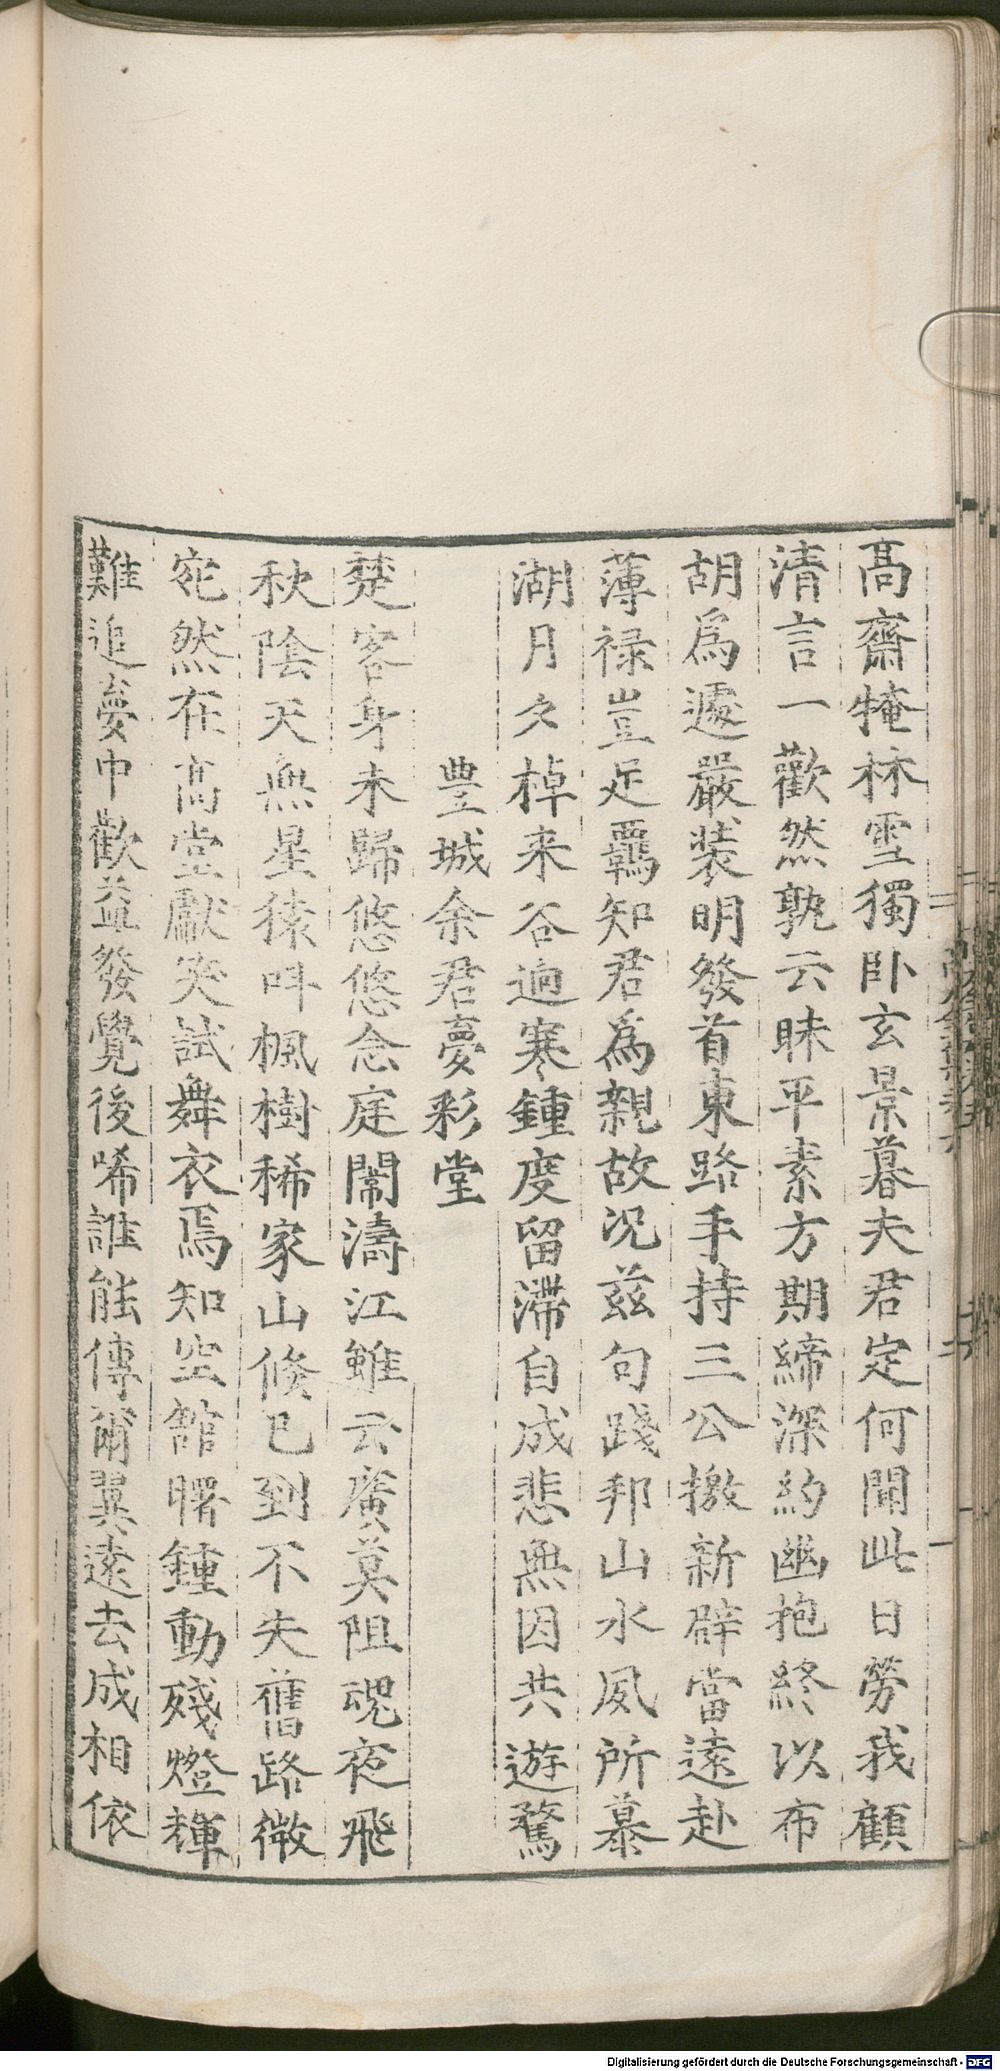 高齋掩林雪獨卧玄景暮夫君定何聞此日勞我顧
清言一歡然孰云昧平素方期締深約幽抱終以布
胡為遽嚴装明發首東路手持三公檄新辟當遠赴
薄禄豈足羈知君為親故况兹句踐邦山水夙所慕
湖月夕棹来谷逈寒鍾度留滯自成悲無因共遊騖
豊城余君夢彩堂
楚客身未歸悠悠念庭闈濤江雖云廣莫阻魂夜飛
秋陰天無星猿呌楓樹稀家山倐已到不失舊路微
宛然在高堂獻笑試舞衣焉知空舘曙鍾動殘燈輝
難追夢中歡益發覺後唏誰能傳爾翼遠去成相依
Digitalisierung gefördert durch die Deutsche Forschungsgemeinschaft - DFG